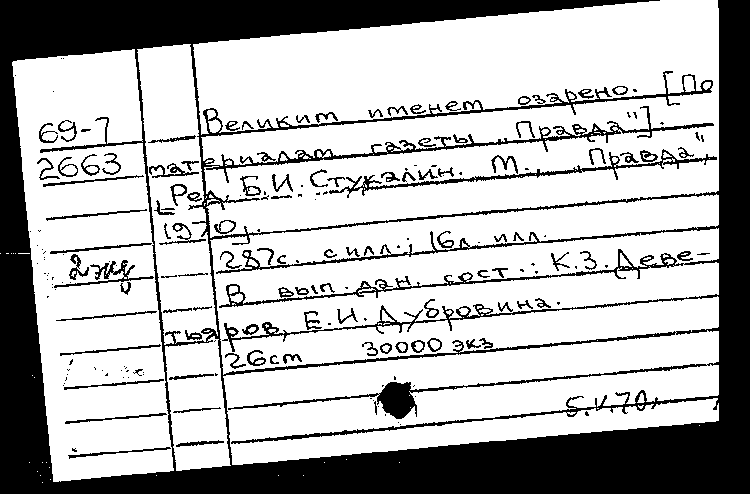 69-7
2663
Великим именем озарено. [По
материалам газеты „Правда"].
Ред. Б.И. Стукалин. М., „Правда",
1970.
287с. с илл.; 16л. илл.
2 экз
В вып. дан. сост.: К.З. Деве-
тьяров, Е.И. Дубровина.
26см 30000 экз
5.V.70,